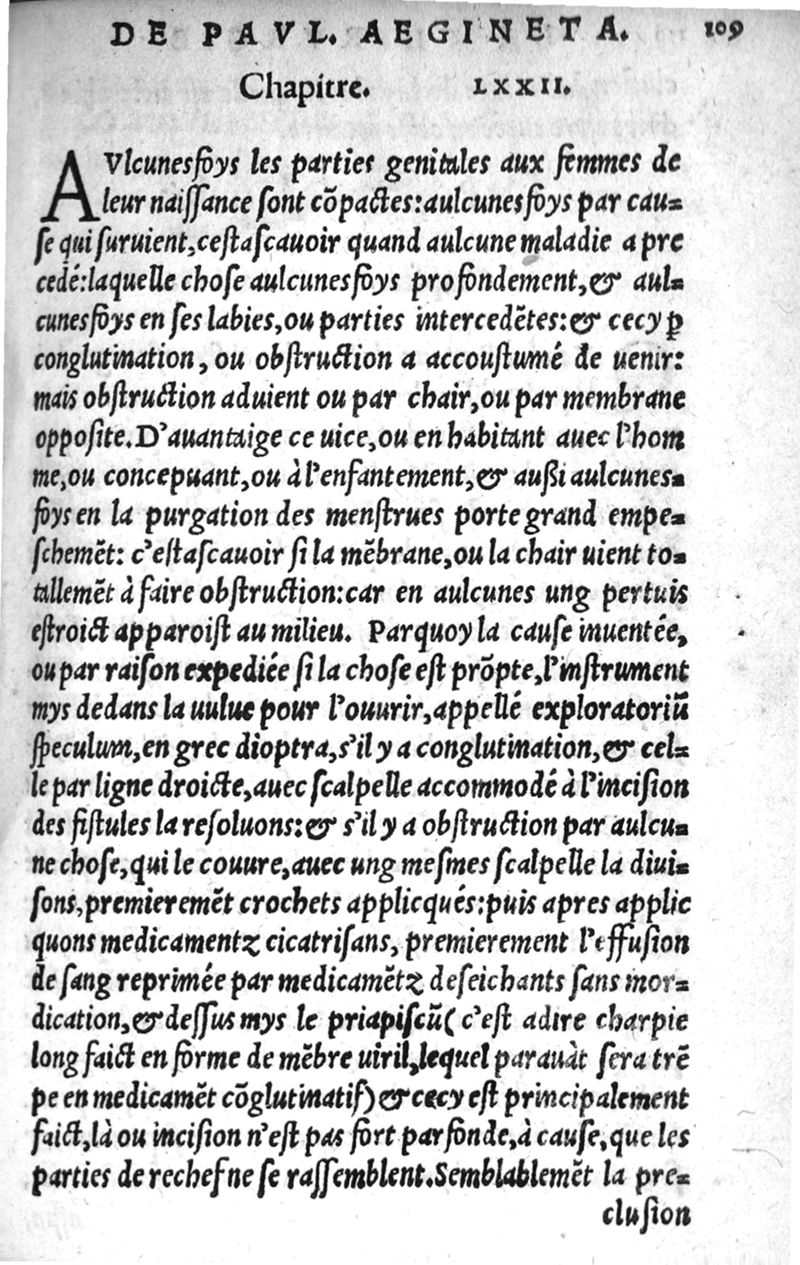 DE PAVL. AEGINETA. 109
Chapitre. LXXII.
AVlcunesfoys les parties genitales aux femmes de
leur naiſſance ſont cõpactes:aulcunesfoys par cau-
ſe qui ſuruient,ceſtaſcauoir quand aulcune maladie a pre
cedé:laquelle choſe aulcunesfoys profondement,& aul-
cunesfoys en ſes labies,ou parties intercedẽtes:& cecy ꝑ
conglutination, ou obſtruction a accouſtumé de uenir:
mais obſtruction aduient ou par chair,ou par membrane
oppoſite.D'auantaige ce uice,ou en habitant auec l'hom
me,ou concepuant,ou à l'enfantement,& außi aulcunes-
foys en la purgation des menſtrues porte grand empe-
ſchemẽt: c'eſtaſcauoir ſi la mẽbrane,ou la chair uient to-
tallemẽt à faire obſtruction:car en aulcunes ung pertuis
eſtroict apparoiſt au milieu. Parquoy la cauſe inuentée,
ou par raiſon expediée ſi la choſe eſt prõpte,l'inſtrument
mys dedans la uulue pour l'ouurir,appellé exploratoriũ
ſpeculum,en grec dioptra,s'il y a conglutination,& cel-
le par ligne droicte,auec ſcalpelle accommodé à l'inciſion
des fiſtules la reſoluons:& s'il y a obſtruction par aulcu-
ne choſe,qui le couure,auec ung meſmes ſcalpelle la diui-
ſons,premieremẽt crochets applicqués:puis apres applic
quons medicamentz cicatriſans, premierement l'effuſion
de ſang reprimée par medicamẽtz deſeichants ſans mor-
dication,& deſſus mys le priapiſcũ( c'eſt adire charpie
long faict en forme de mẽbre uiril,lequel parauàt ſera trẽ
pe en medicamẽt cõglutinatif) & cecy eſt principalement
faict,là ou inciſion n'eſt pas fort parfonde,à cauſe,que les
parties de rechef ne ſe raſſemblent.Semblablemẽt la pre-
cluſion